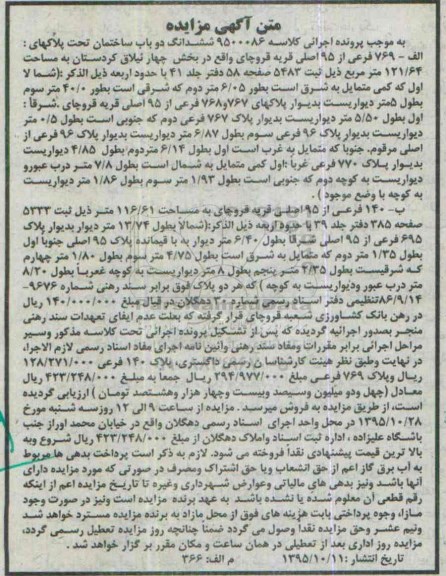 متن آگهی مزایده
به موجب پرونده اجرائی کلاسه ۹۵۰۰۰۸۶ ششدانگ دو باب ساختمان تحت پلاکهای :
الف - ۷۶۹ فرعی از ۹۵ اصلی قریه قروچای واقع در بخش چهار ئیلاق کردستان به مساحت
۱۲۱/۶۴ متر مربع ذیل ثبت ۵۴۸۳ صفحه ۵۸ دفتر جلد ۴۱ با حدود اربعه ذیل الذکر :(شمالا
اول که کمی متمایل به شرق است بطول ۶/۰۵ متر دوم که شرقی است بطور ۴۰/۰ متر سوم
بطول ۵متر دیواریست بدیوار پلاکهای ۷۶۷و۷۶۸ فرعی از ۹۵ اصلی قریه قروچای .شرقاً :
اول بطول ۵/۵۰ متر دیواریست بدیوار پلاک ۷۶۷ فرعی دوم که جنوبی است بطول ۰/۵ متر
دیواریست بدیوار پلاک ۹۶ فرعی سوم بطول ۶/۸۷ متر دیواریست بدیوار پلاک ۹۶ فرعی از
اصلی مرقوم. جنوبا که متمایل به غرب است اول بطول ۶/۱۴ متردوم بطول ۴/۸۵ دیواریست
بدیوار پلاک ۷۷۰ فرعی غرباً :اول کمی متمایل به شمال است بطول ۷/۸ متر درب عبورو
دیواریست به کوچه دوم که جنوبی است بطول ۱/۹۳ متر سوم بطول ۱/۸۶ متر دیواریست
به کوچه با وضع موجود ) .
ب- ۱۴۰ فرعی از ۹۵ اصلی قریه قروچای به مساحت ۱۱۶/۶۱ متر ذیل ثبت ۵۳۳۳
صفحه ۳۸۵ دفتر جلد ۳۹ با حدود اربعه ذیل الذکر:(شمالا بطول ۱۳/۷۴ متر دیوار بدیوار پلاک
۶۹۵ فرعی از ۹۵ اصلی شرقا بطول ۶/۴۰ متر دیوار به با قیمانده پلاک ۹۵ اصلی جنوبا اول
بطول ۱/۳۵ متر دوم که متمایل به شرق است بطول ۴/۷۵ متر سوم بطول ۱/۸۰ متر چهارم
که شرقیست بطول ۲/۳۵ متر پنجم بطول ۸ متر دیواریست به کوچه غرباً بطول ۸/۲۰
متر درب عبور ودیواریست به کوچه ) که هر دو پلاک فوق برابر سند رهنی شماره ۹۶۷۶-
۸۶/۹/۱۴تنظیمی دفتر اسناد رسمی شماره ۳۰ دهگلان در قبال مبلغ ۱۴۰/۰۰۰/۰۰۰ ریال
در رهن بانک کشاورزی شعبه قروچای قرار گرفته که بعلت عدم ایفای تعهدات سند رهنی
منجر بصدور اجرائیه گردیده که پس از تشکیل پرونده اجرائی تحت کلاسه مذکور وسیر
مراحل اجرائی برابر مقررات ومفاد سند رهنی وآئین نامه اجرای مفاد اسناد رسمی لازم الاجرا،
در نهایت وطبق نظر هیئت کارشناسان رسمی دادگستری، پلاک ۱۴۰ فرعی ۱۲۸/۲۷۱/۰۰۰
ریال وپلاک ۷۶۹ فرعی مبلغ ۲۹۴/۹۷۷/۰۰۰ ریال جمعا به مبلغ ۴۲۳/۲۴۸/۰۰۰ ریال
معادل (چهل ودو میلیون وسیصد وبیست وچهار هزار وهشتصد تومان ) ارزیابی گردیده
است، از طریق مزایده به فروش میرسد . مزایده از ساعت ۹ الی ۱۲ روزسه شنبه مورخ
۱۳۹۵/۱۰/۲۸ در محل واحد اجرای اسناد رسمی دهگلان واقع در خیابان محمد اوراز جنب
باشگاه علیزاده ، اداره ثبت اسناد واملاک دهگلان از مبلغ ۴۲۳/۲۴۸/۰۰۰ ریال شروع وبه
بالا ترین قیمت پیشنهادی نقداً فروخته می شود. لازم به ذکر است پرداخت بدهی ها مربوط
به آب برق گاز اعم از حق انشعاب ویا حق اشتراک ومصرف در صورتی که مورد مزایده دارای
آنها باشد ونیز بدهی های مالیاتی وعوارض شهرداری وغیره تا تاریخ مزایده اعم از اینکه
رقم قطعی آن معلوم شده یا نشده باشد به عهد برنده مزایده است ونیز در صورت وجود
مازاد وجوه پرداختی بابت هزینه های فوق از محل مازاد به برنده مزایده مسترد خواهد شد
ونیم عشر وحق مزایده نقدا وصول می گردد ضمنا چنانچه روز مزایده تعطیل رسمی گردد،
مزایده روز اداری بعد از تعطیلی در همان ساعت و مکان مقرر بر گزار خواهد شد .
تاریخ انتشار :۱۳۹۵/۱۰/۱۱ م الف: ۳۶۶